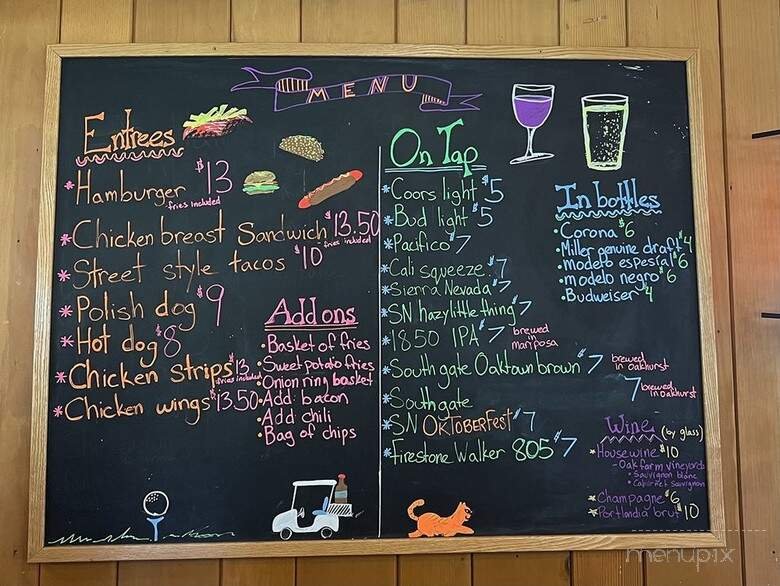 MENU
Entrees
* Hamburger $13
fries included
* Chicken breast Sandwich $13.50
- fries included
* Street style tacos $10
* Polish dog $9
* Hot dog $8
* Chicken strips $13
fries included
* Chicken wings $13.50
Add ons
• Basket of fries
• Sweet potato fries
• Onion ring basket
• Add bacon
• Add chili
• Bag of chips
On Tap
* Coors light $5
* Bud light $5
* Pacifico $7
* Cali squeeze $7
* Sierra Nevada $7
* SN hazy little thing $7
* 1850 IPA $7 brewed in mariposa
* South gate Oaktown brown $7 brewed in oakhurst
* South gate 7 brewed in oakhurst
* SN OKTOBERFEST $7
* Firestone Walker 805 $7
In bottles
• Corona $6
• Miller genuine draft $4
• Modelo espesial $6
• modelo negro $6
• Budweiser $4
Wine (by glass)
* House wine $10
- Oak farm vineyards
• Sauvignon blanc
• Cabernet Sauvignon
* Champagne $6
* Portlandia brut $10
menupix